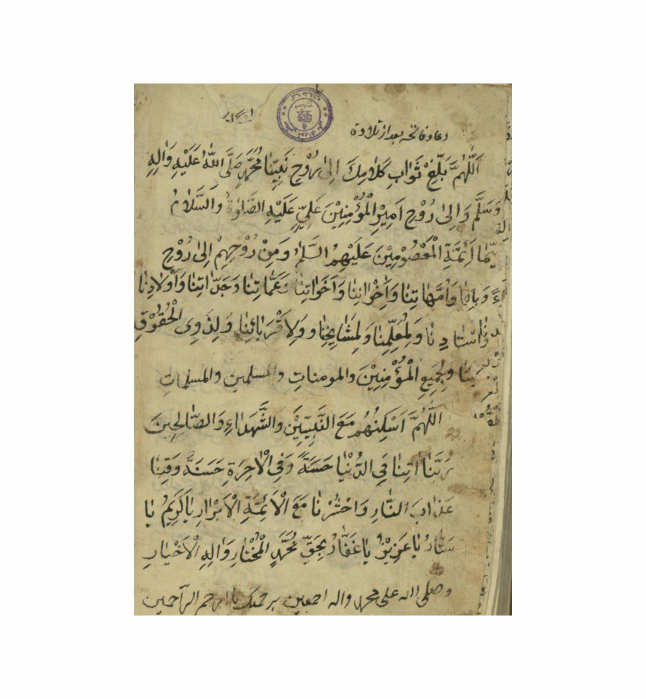 دعاء فاتحه بعد از تلاوة
اَللّٰهُمَّ بَلِّغْ ثَوَابَ كَلَامِكَ اِلٰى رُوْحِ نَبِيِّنَا مُحَمَّدٍ صَلَّى اللّٰهُ عَلَيْهِ وَاٰلِهِ
وَسَلَّمَ وَاِلٰى رُوْحِ اَمِيْرِ الْمُؤْمِنِيْنَ عَلِيٍّ عَلَيْهِ الصَّلٰوةُ وَالسَّلَامُ
اَئِمَّةِ الْمَعْصُوْمِيْنَ عَلَيْهِمُ السَّلَامُ وَمِنْ رُوْحِهِمْ اِلٰى رُوْحِ
وَاُمَّهَاتِنَا وَاِخْوَانِنَا وَاَخَوَاتِنَا وَعَمَّاتِنَا وَجَدَّاتِنَا وَاَوْلَادِنَا
وَاُسْتَادِنَا وَلِمُعَلِّمِنَا وَلِمَشَايِخِنَا وَلِاَقْرَبَائِنَا وَلِذَوِى الْحُقُوْقِ
وَلِجَمِيْعِ الْمُؤْمِنِيْنَ والمومنات والمسلمين والمسلمات
اَللّٰهُمَّ اَسْكِنْهُمْ مَعَ النَّبِيِّيْنَ وَالشُّهَدَاءِ وَالصَّالِحِيْنَ
رَبَّنَا اٰتِنَا فِى الدُّنْيَا حَسَنَةً وَفِى الْاٰخِرَةِ حَسَنَةً وَقِنَا
عَذَابَ النَّارِ وَاحْشُرْنَا مَعَ الْاَئِمَّةِ الْاَبْرَارِ يَا كَرِيْمُ يَا
سَتَّارُ يَا عَزِيْزُ يَا غَفَّارُ بِحَقِّ مُحَمَّدٍ الْمُخْتَارِ وَاٰلِهِ الْاَخْيَارِ
وصلى الله على محمد واله اجمعين برحمتك يا ارحم الراحمين